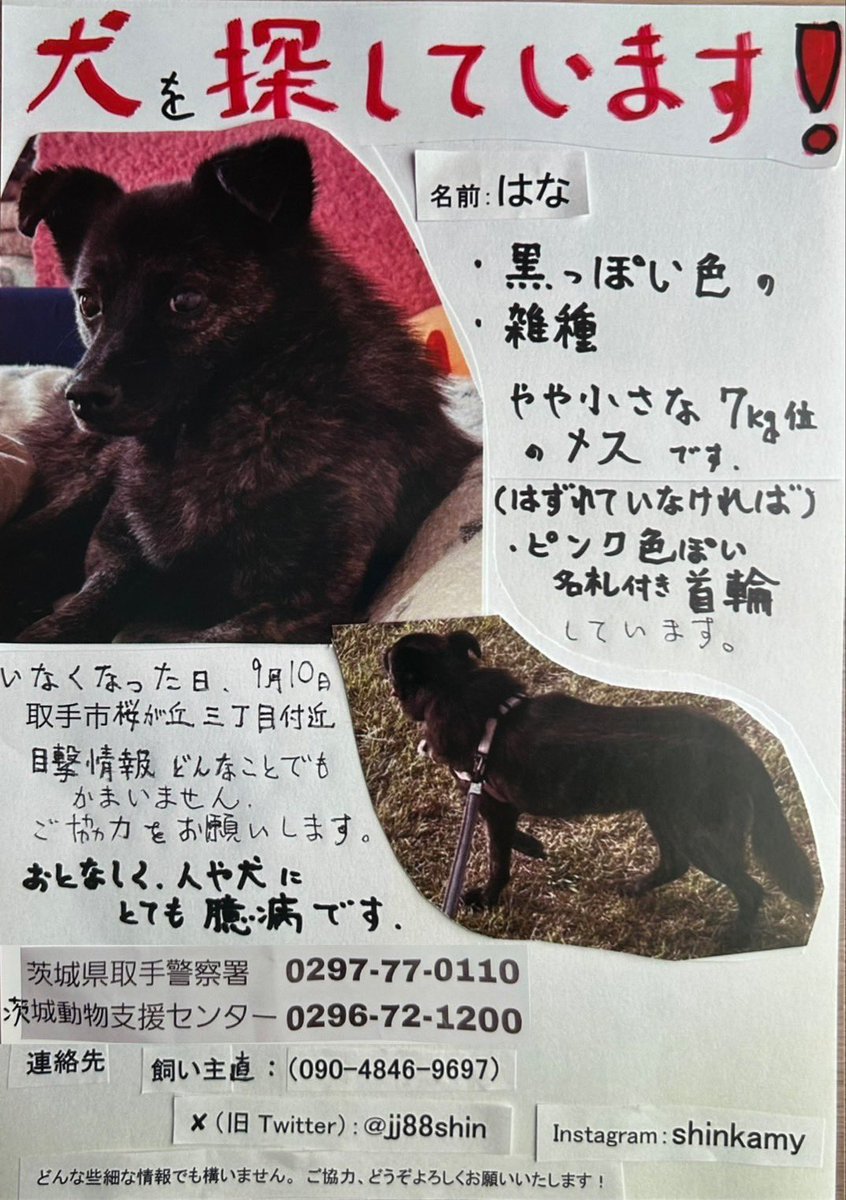 犬を探しています!
名前：はな
・黒っぽい色の
・雑種
やや小さな7kg位
のメスです.
(はずれていなければ)
・ピンク色ぽい
名札付き首輪
しています。
いなくなった日、9月10日
取手市桜が丘三丁目付近
目撃情報どんなことでも
かまいません.
ご協力をお願いします。
おとなしく、人や犬に
とても臆病です.
茨城県取手警察署 0297-77-0110
茨城動物支援センター 0296-72-1200
連絡先 飼い主直：(090-4846-9697)
✘（旧 Twitter）：@jj88shin
Instagram：shinkamy
どんな些細な情報でも構いません。ご協力、どうぞよろしくお願いいたします！